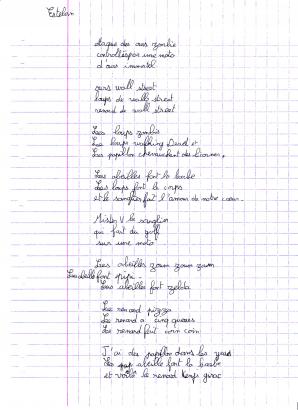 Estelan
des ours zombie
controllés par une moto
d'ours immortel
ours wall street
loups de walls street
renard de wall street
Les loups zombie
Les loups walking Dead et
Les papillon chevauchent des licornes.
Les abeilles font la barbe
des loups font le corps
et le sanglier fait l'amour de notre coeur.
Mister V le sanglier
qui fait du golf
sur une moto
Les abeilles zoum zoum zoum
Les abeille font pipi
Les abeilles font zelda
Le renard pizza
Le renard a cinq queues
Le renard fait coin coin
J'ai des papillon dans les yeux
des abeille font la barbe
et voilà le renard